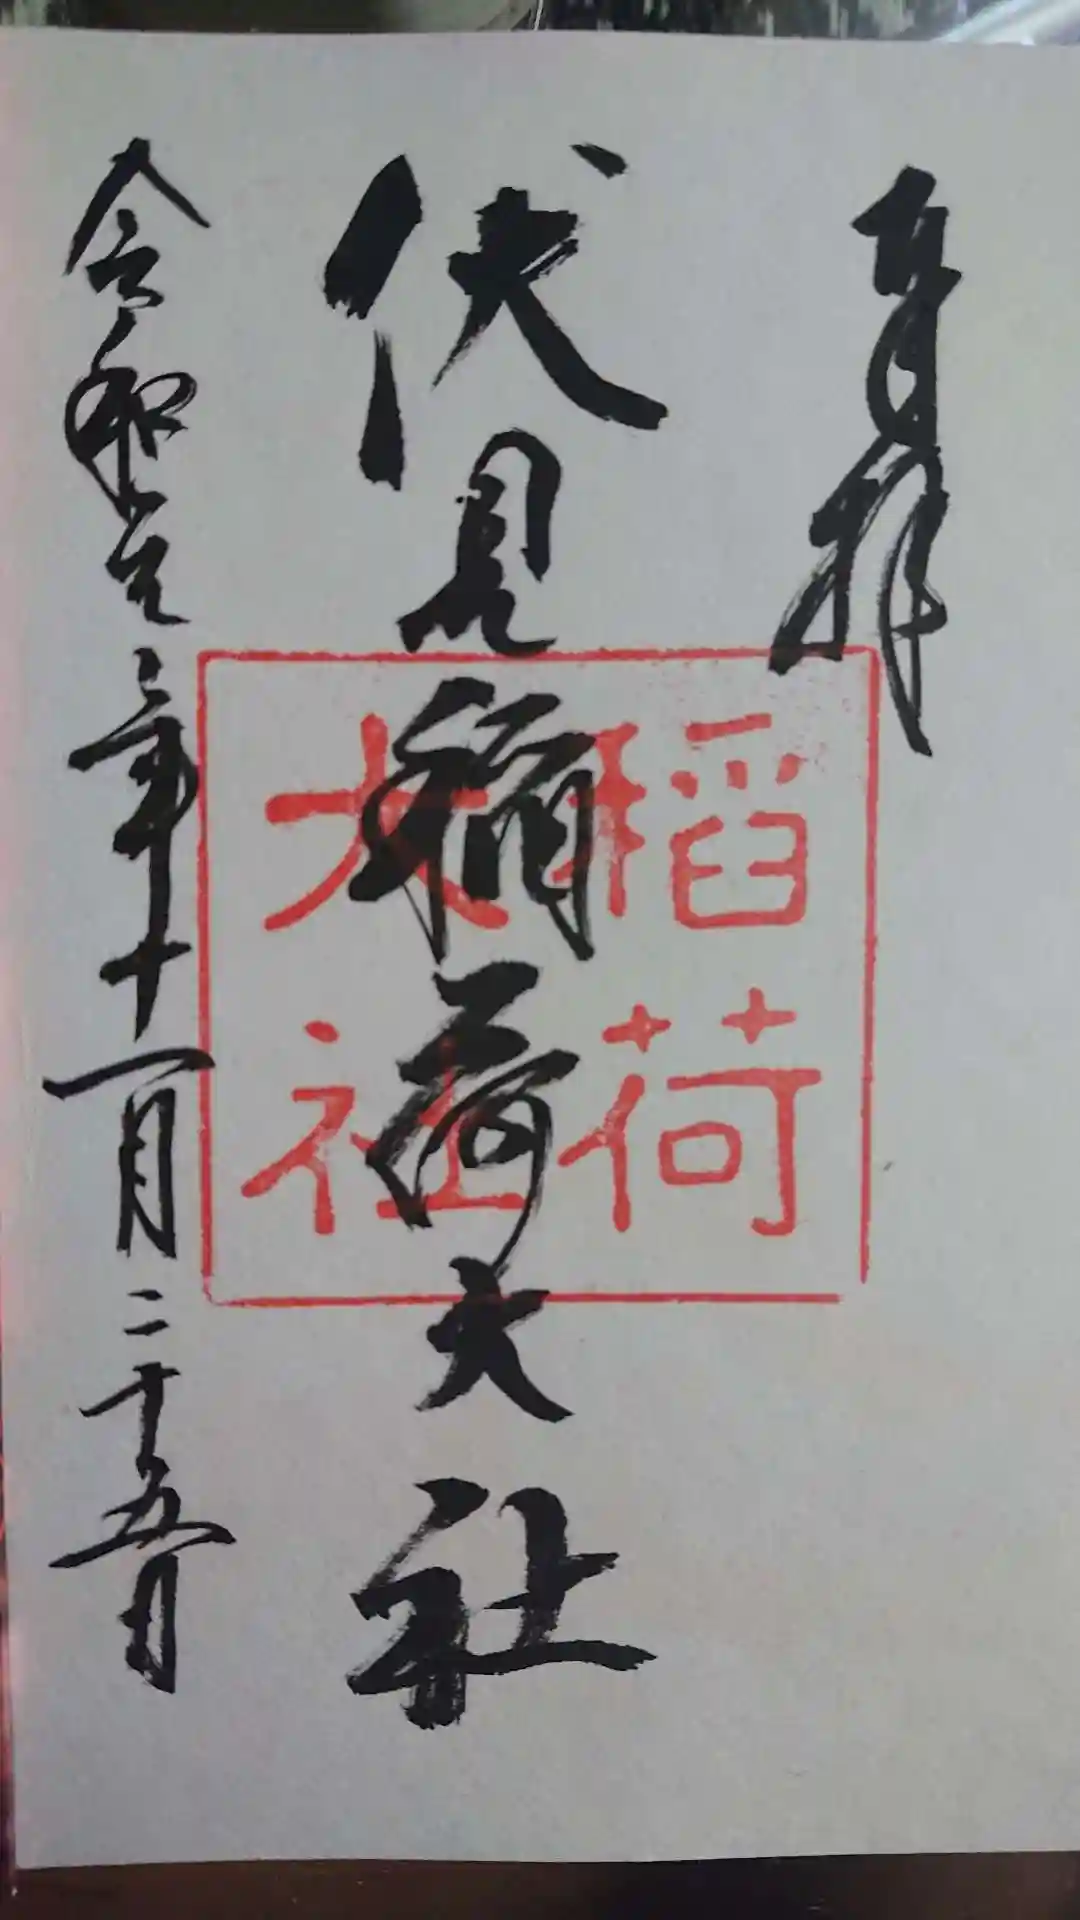 奉拝
伏見稲荷大社
令和元年十一月二十五日
稻荷
大社